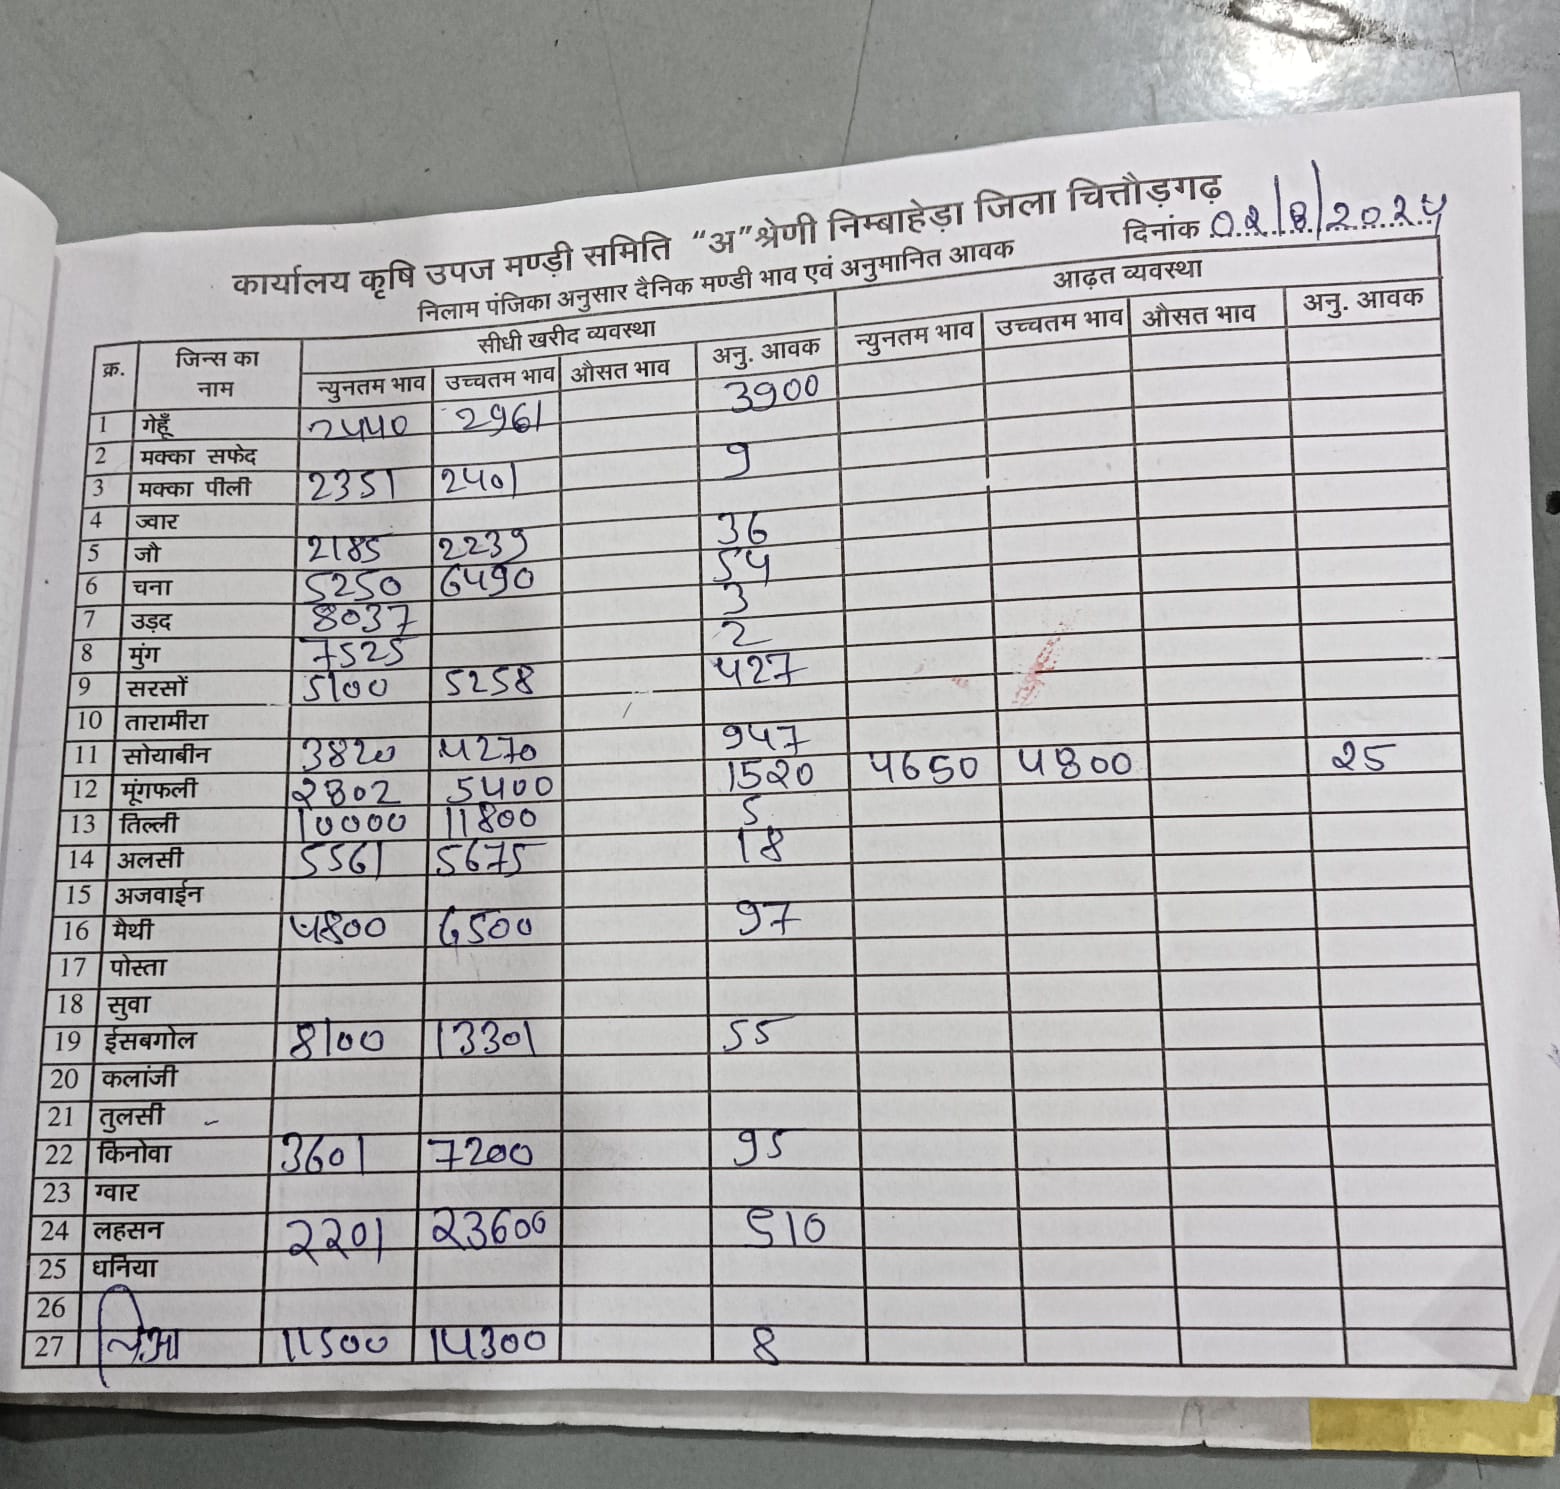 कार्यालय कृषि उपज मण्ड़ी समिति "अ" श्रेणी निम्बाहेड़ा जिला चित्तौड़गढ़
निलाम पंजिका अनुसार दैनिक मण्डी भाव एवं अनुमानित आवक दिनांक 02/8/2024
सीधी खरीद व्यवस्था आढ़त व्यवस्था
क्र. जिन्स का नाम न्युनतम भाव उच्चतम भाव औसत भाव अनु. आवक न्युनतम भाव उच्चतम भाव औसत भाव अनु. आवक
1 गेहूँ 2440 2961 3900
2 मक्का सफेद
3 मक्का पीली 2351 2401 9
4 ज्वार
5 जौ 2185 2239 36
6 चना 5250 6490 54
7 उड़द 8037 3
8 मुंग 7525 2
9 सरसों 5100 5258 427
10 तारामीरा
11 सोयाबीन 3820 4270 947
12 मूंगफली 2802 5400 1520 4650 4800 25
13 तिल्ली 10000 11800 5
14 अलसी 5561 5675 18
15 अजवाईन
16 मैथी 4800 6500 97
17 पोस्ता
18 सुवा
19 ईसबगोल 8100 13301 55
20 कलांजी
21 तुलसी -
22 किनोवा 3601 7200 95
23 ग्वार
24 लहसन 2201 23600 510
25 धनिया
26
27 11500 14300 8